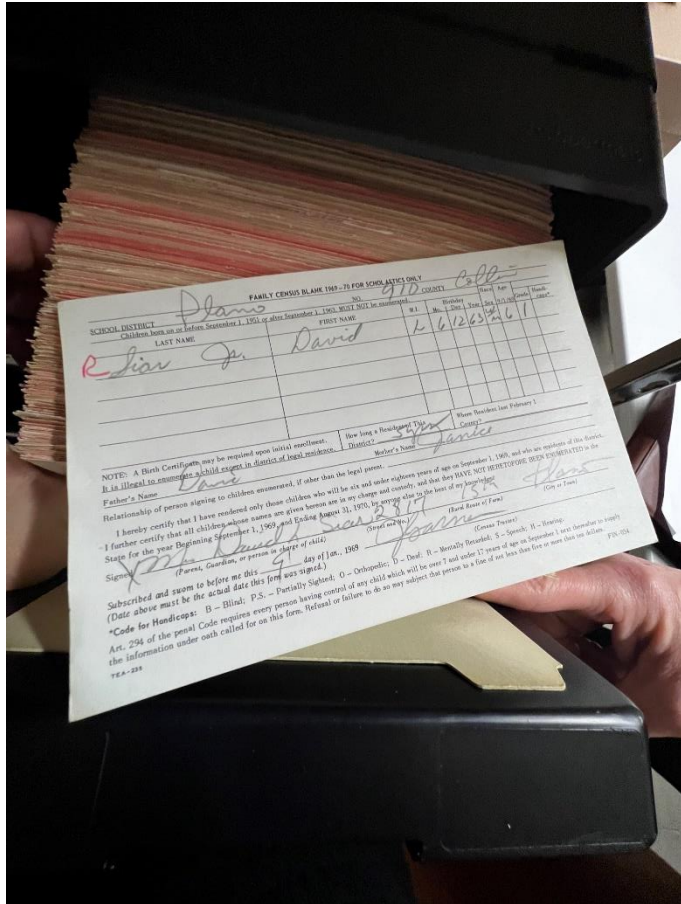 FAMILY CENSUS BLANK 1969-70 FOR SCHOLASTICS ONLY
SCHOOL DISTRICT Plano NO. 910 COUNTY Collin
Children born on or before September 1, 1951 or after September 1, 1963, MUST NOT be enumerated.
LAST NAME FIRST NAME M.I. Birthday Mo. Day Year Race Sex Age 9/1/69 Grade Handi- caps*
R Jr. David L 6 12 63 6 1
NOTE: A Birth Certificate may be required upon initial enrollment.
It is illegal to enumerate a child except in district of legal residence.
How long a Resident of This District? 5 yrs
Where Resident last February 1
County?
Father's Name David Mother's Name Janice
Relationship of person signing to children enumerated, if other than the legal parent.
I hereby certify that I have rendered only those children who will be six and under eighteen years of age on September 1, 1969, and who are residents of this district.
I further certify that all children whose names are given hereon are in my charge and custody, and that they HAVE NOT HERETOFORE BEEN ENUMERATED in the
State for the year Beginning September 1, 1969, and Ending August 31, 1970, by anyone else to the best of my knowledge.
Signed X Mrs David L 2817 15th Plano
(Parent, Guardian, or person in charge of child) (Street and No.) (Rural Route or Farm) (City or Town)
Subscribed and sworn to before me this 9 day of Jan., 1969
(Census Trustee)
(Date above must be the actual date this form was signed.)
*Code for Handicaps: B – Blind; P.S. – Partially Sighted; O – Orthopedic; D – Deaf; R – Mentally Retarded; S – Speech; H – Hearing.
Art. 294 of the penal Code requires every person having control of any child which will be over 7 and under 17 years of age on September 1 next thereafter to supply
the information under oath called for on this form. Refusal or failure to do so may subject that person to a fine of not less than five or more than ten dollars.
TEA-235